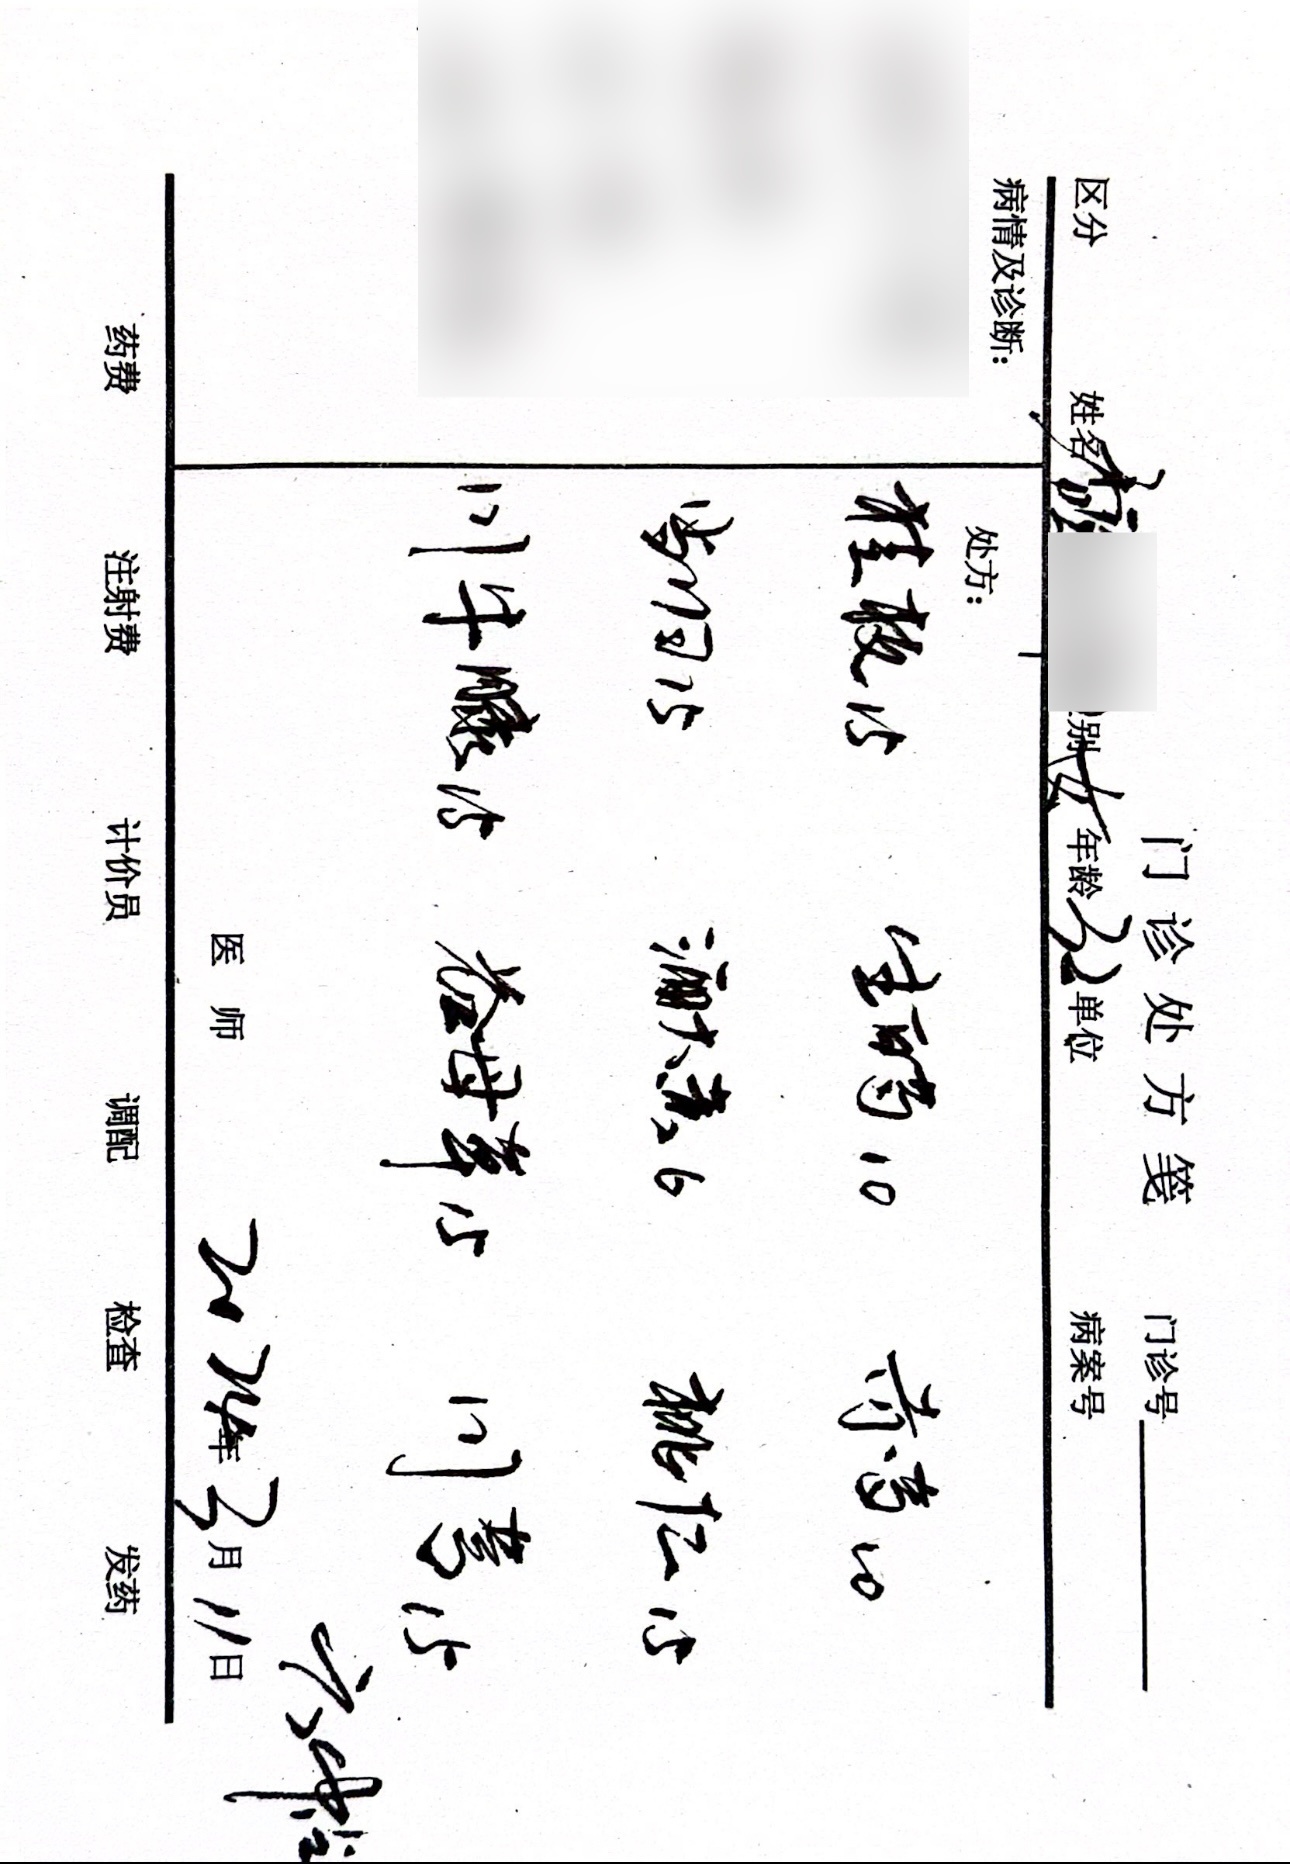 门诊处方笺 门诊号
区分 姓名 别女 年龄32 单位 病案号
病情及诊断:
处方:
桂枝15 生白芍10 赤芍10
当归15 酒大黄6 桃仁15
川牛膝15 益母草15 川芎15
医师
2024年3月11日
药费 注射费 计价员 调配 检查 发药